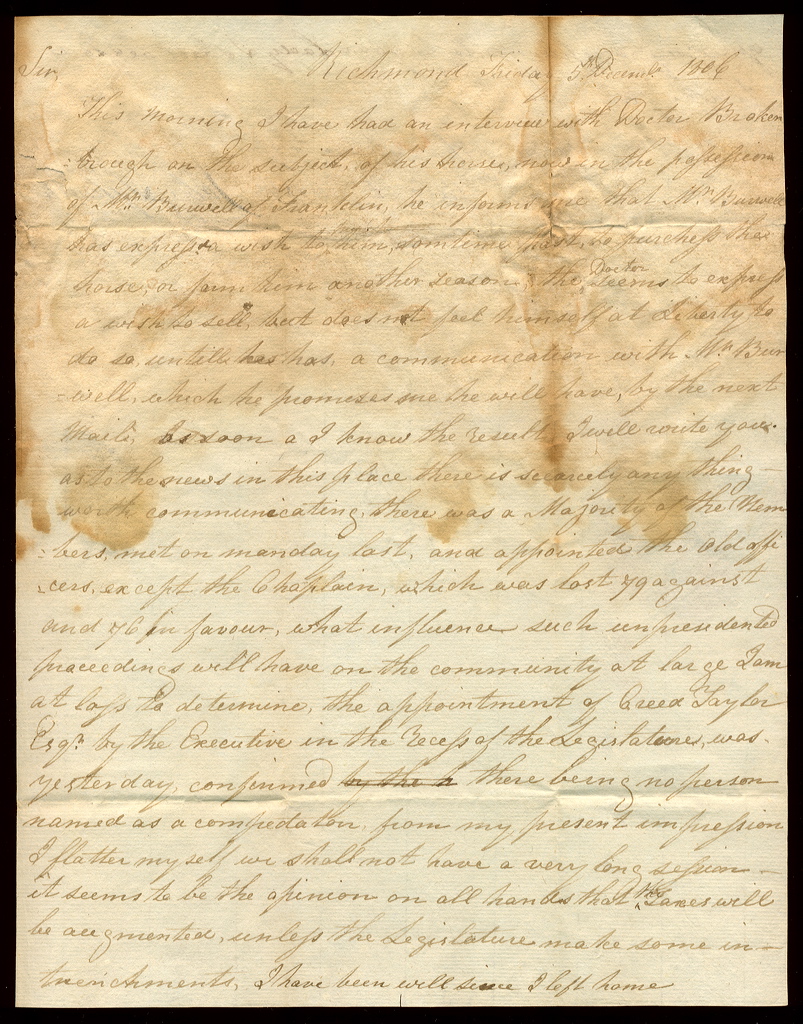 Sir, Richmond Friday 5th Decemr. 1806
This morning I have had an interview with Doctor Broken
=brough on the subject, of his horse, now in the possession
of Mr. Burwell of Franklin, he informs me that Mr. Burwell
has express'd a wish to him, somtime past, to purchess the
horse, or farm him another season, the Doctor seems to express
a wish to sell, but does not feel himself at Liberty to
do so, untill has, a communication with Mr. Bur
=well, which he promises me he will have, by the next
Maile, as soon a I know the result, I will write you.
as to the news in this place there is scarcely any thing -
worth communicating, there was a Majority of the Mem
=bers, met on manday last, and appointed the old offi
=cers, except the Chaplain, which was lost 79 against
and 76 in favour, what influence such unpresidented
proceedings will have on the community at large I am
at loss to determine, the appointment of Creed Taylor
Esqr. by the Executive in the recess of the Legislature, was -
yesterday, confirmed by the h there being no person
named as a compedator, from my present impression
I flatter my self we shall not have a very long session -
it seems to be the opinion on all hands that the Taxes will
be augmented, unless the Legislature make some in -
trenchments, I have been will since I left home